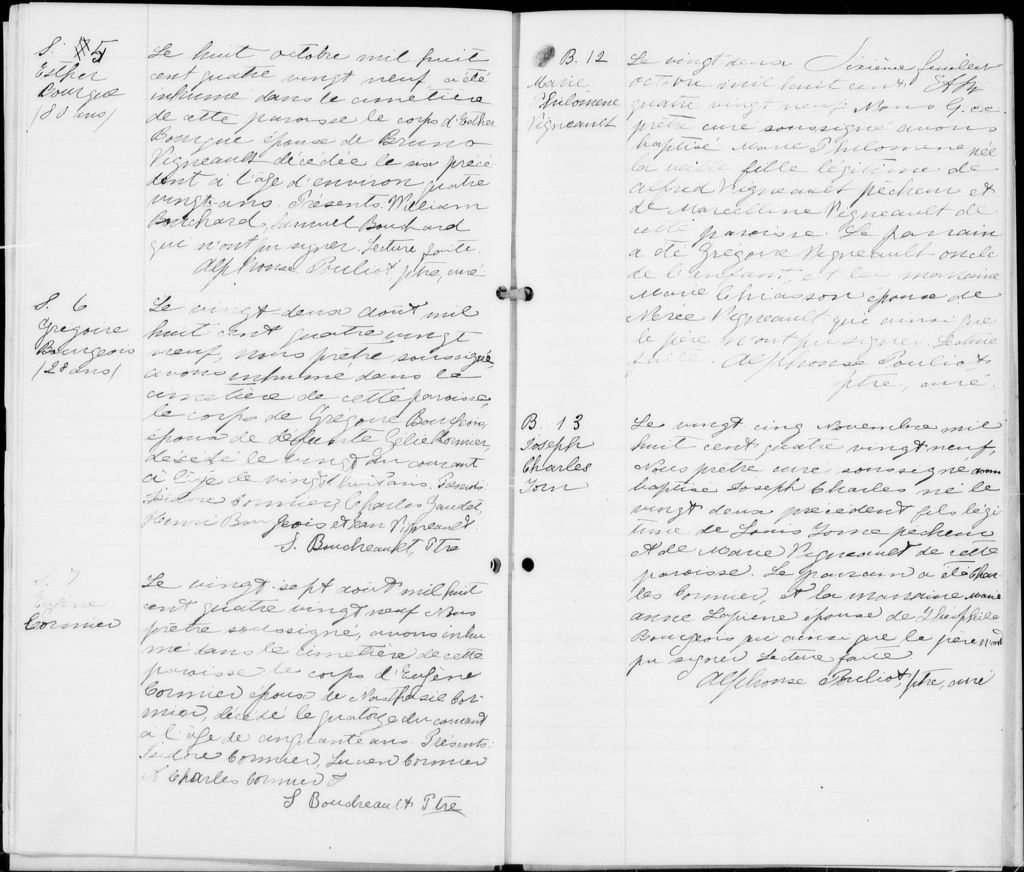 S. 5
Esther
Bourgeois
(80 ans)
Le huit octobre mil huit
cent quatre vingt neuf a été
inhumé dans le cimetière
de cette paroisse le corps d'Esther
Bourgeois épouse de Bruno
Vigneault décédée le six précé
dent à l'âge d'environ quatre
vingt ans. Présents William
Bouchard, Samuel Bouchard
qui n'ont pu signer. Lecture faite.
Alphonse Pouliot ptre, curé
S. 6
Grégoire
Bourgeois
(28 ans)
Le vingt deux août mil
huit cent quatre vingt
neuf, nous prêtre soussigné,
avons inhumé dans le
cimetière de cette paroisse,
le corps de Grégoire Bourgeois,
époux de défunte Cormier,
décédé le vingt du courant
à l'âge de vingt huit ans. Présents
Isidore Cormier, Charles Gaudet,
Henri Bourgeois et Jean Vigneault.
S. Boudreault, Ptre
S. 7
Eugène
Cormier
Le vingt-sept août mil huit
cent quatre vingt neuf Nous
prêtre soussigné, avons inhu
mé dans le cimetière de cette
paroisse le corps d'Eugène
Cormier époux de Nasthasie Cor-
mier, décédé le quatorze du courant
à l'âge de cinquante ans. Présents:
Isidore Cormier, Lucien Cormier
et Charles Cormier
S Boudreault Ptre
Sixième feuillet
B. 12
Marie
Philomène
Vigneault
Le vingt deux
octobre mil huit cent
quatre vingt neuf Nous
prêtre curé soussigné avons
baptisé Marie Philomène née
la veille fille légitime de
Alfred Vigneault pêcheur et
de Marcelline Vigneault de
cette paroisse. Le parrain
a été Grégoire Vigneault oncle
de l'enfant, et la marraine
Marie Chiasson épouse de
Nérée Vigneault qui ainsi que
le père n'ont pu signer. Lecture
faite. Alphonse Pouliot
ptre, curé.
B. 13
Joseph
Charles
Le vingt cinq Novembre mil
huit cent quatre vingt neuf,
Nous prêtre curé soussigné avons
baptisé Joseph Charles né le
vingt deux précédent fils légi
time de Louis pêcheur
et de Marie Vigneault de cette
paroisse. Le parrain a été Char
les Cormier, et la marraine Marie
Anne Lapierre épouse de Théophile
Bourgeois qui ainsi que le père n'ont
pu signer Lecture faite
Alphonse Pouliot, ptre, curé